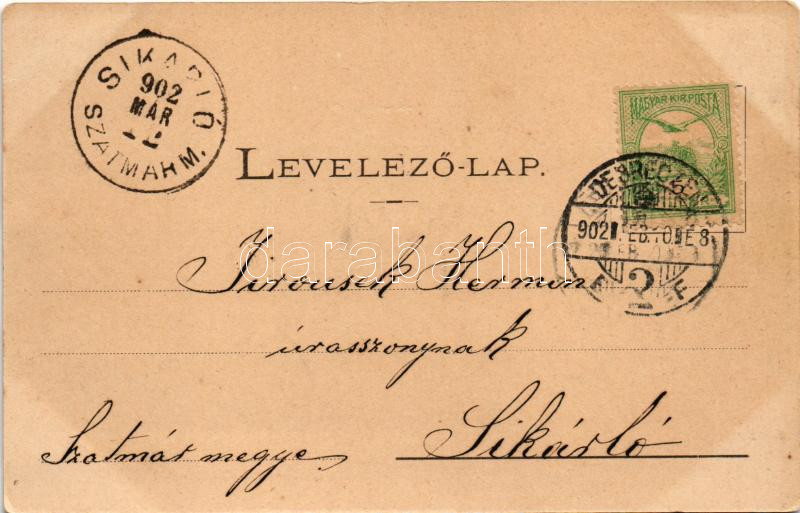 SIKARLÓ
902
MÁR
SZATMÁR M.
MAGYAR KIR. POSTA
LEVELEZŐ-LAP.
DEBRECZEN
902 FEB. 10. DE 8
2
darabanth
Jirousek Hermin
úrasszonynak
Sikárló
Szatmár megye